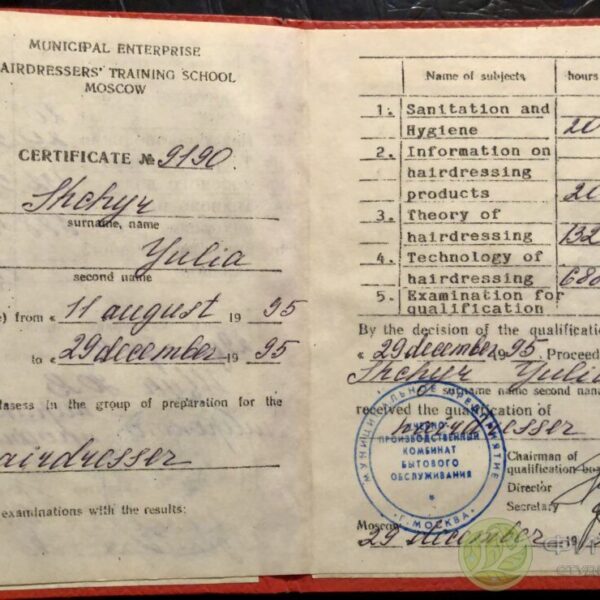 MUNICIPAL ENTERPRISE
AIRDRESSERS' TRAINING SCHOOL
MOSCOW
CERTIFICATE № 9190
Shchyr
surname, name
Yulia
second name
e) from « 11 august 19 95
to « 29 december 19 95
lasess in the group of preparation for the
airdresser
examinations with the results:
Name of subjects hours
1. Sanitation and
Hygiene 20
2. Information on
hairdressing
products 20
3. Theory of
hairdressing 132
4. Technology of
hairdressing 680
5. Examination for
qualification
By the decision of the qualificatio
« 29 december 95. Proceed
Shchyr Yulia
surname name second nam
received the qualification of
hairdresser
Chairman of
qualification
Director
Secretary
МУНИЦИПАЛЬНОЕ ПРЕДПРИЯТИЕ
УЧЕБНО-
ПРОИЗВОДСТВЕННЫЙ
КОМБИНАТ
БЫТОВОГО
ОБСЛУЖИВАНИЯ
Г. МОСКВА
Moscow
29 december 19